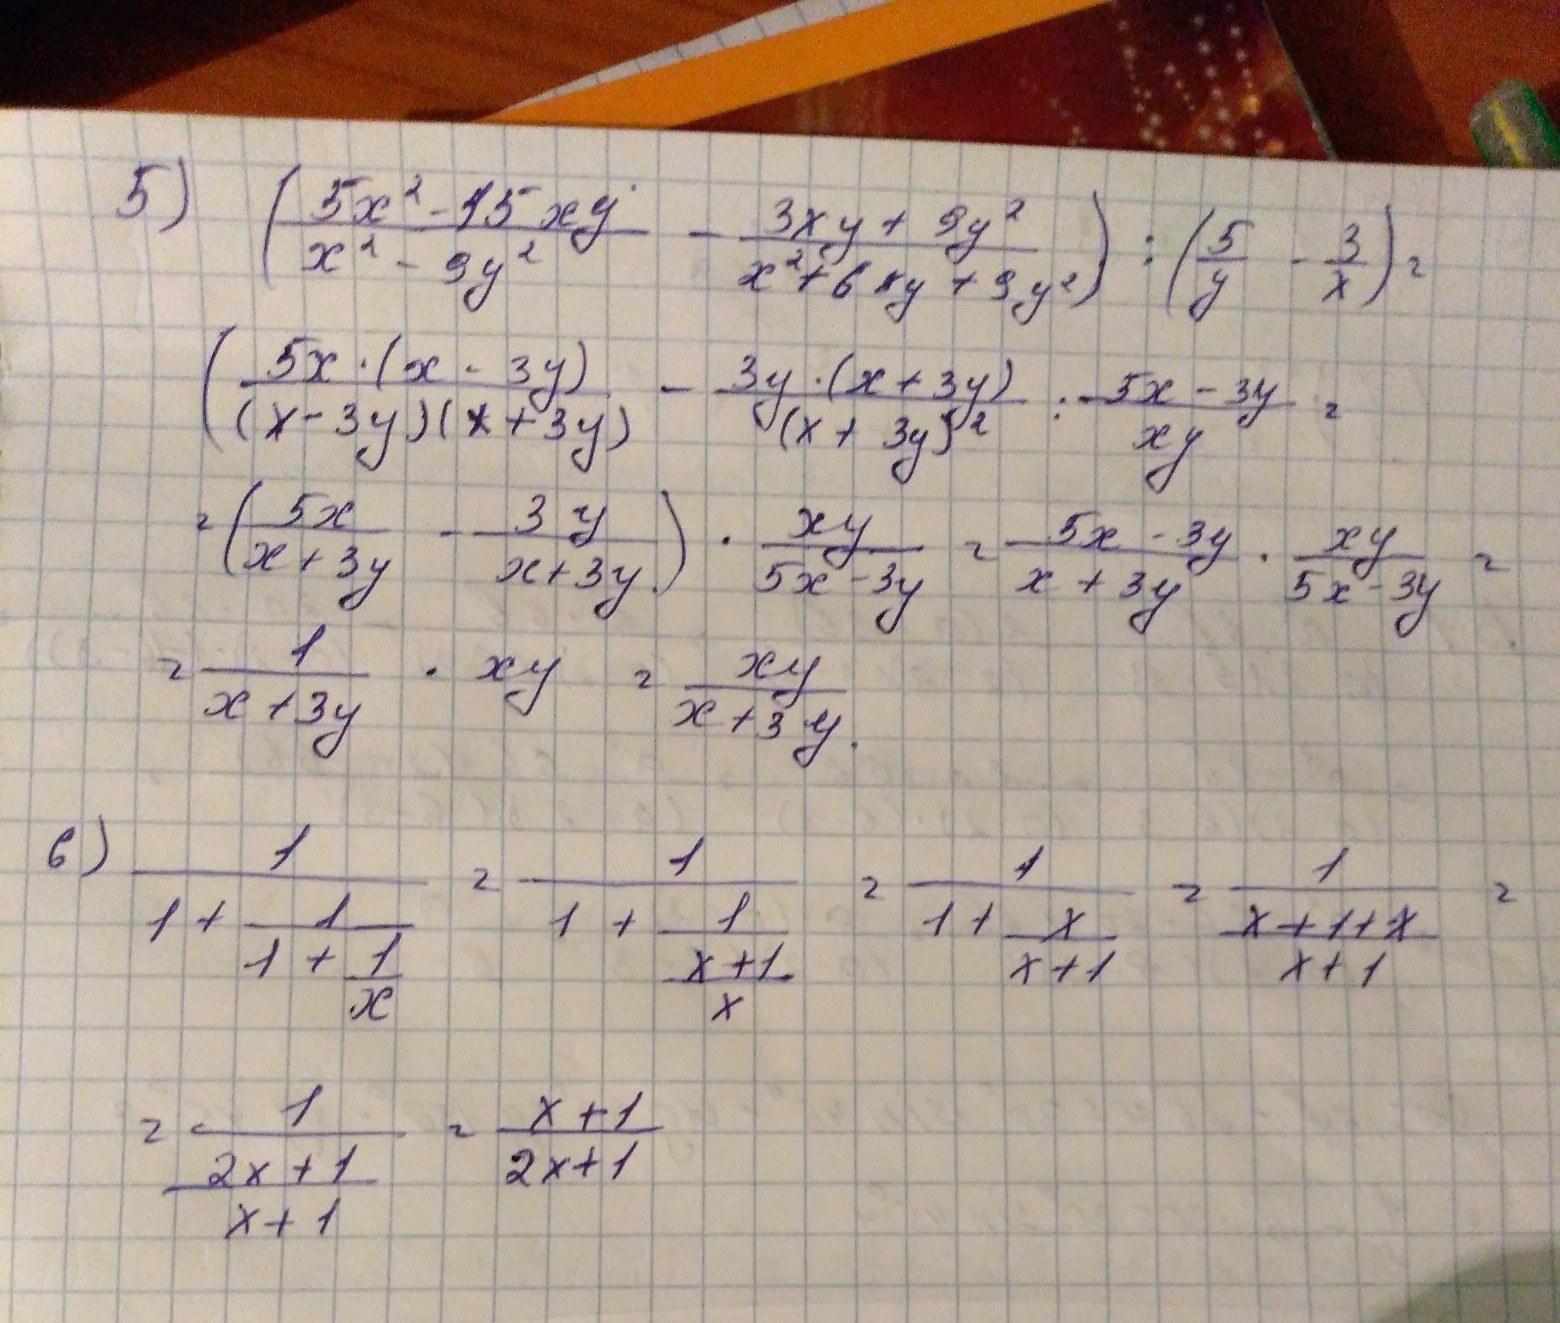 5) ((5x² - 15xy)/(x² - 9y²) - (3xy + 9y²)/(x² + 6xy + 9y²)) : (5/y - 3/x) =
((5x·(x - 3y))/((x - 3y)(x + 3y)) - (3y·(x + 3y))/(x + 3y)² : (5x - 3y)/(xy) =
= (5x/(x + 3y) - 3y/(x + 3y)) · xy/(5x - 3y) = (5x - 3y)/(x + 3y) · xy/(5x - 3y) =
= 1/(x + 3y) · xy = xy/(x + 3y).
6) 1/(1 + 1/(1 + 1/x)) = 1/(1 + 1/((x + 1)/x)) = 1/(1 + x/(x + 1)) = 1/((x + 1 + x)/(x + 1)) =
= 1/((2x + 1)/(x + 1)) = (x + 1)/(2x + 1)